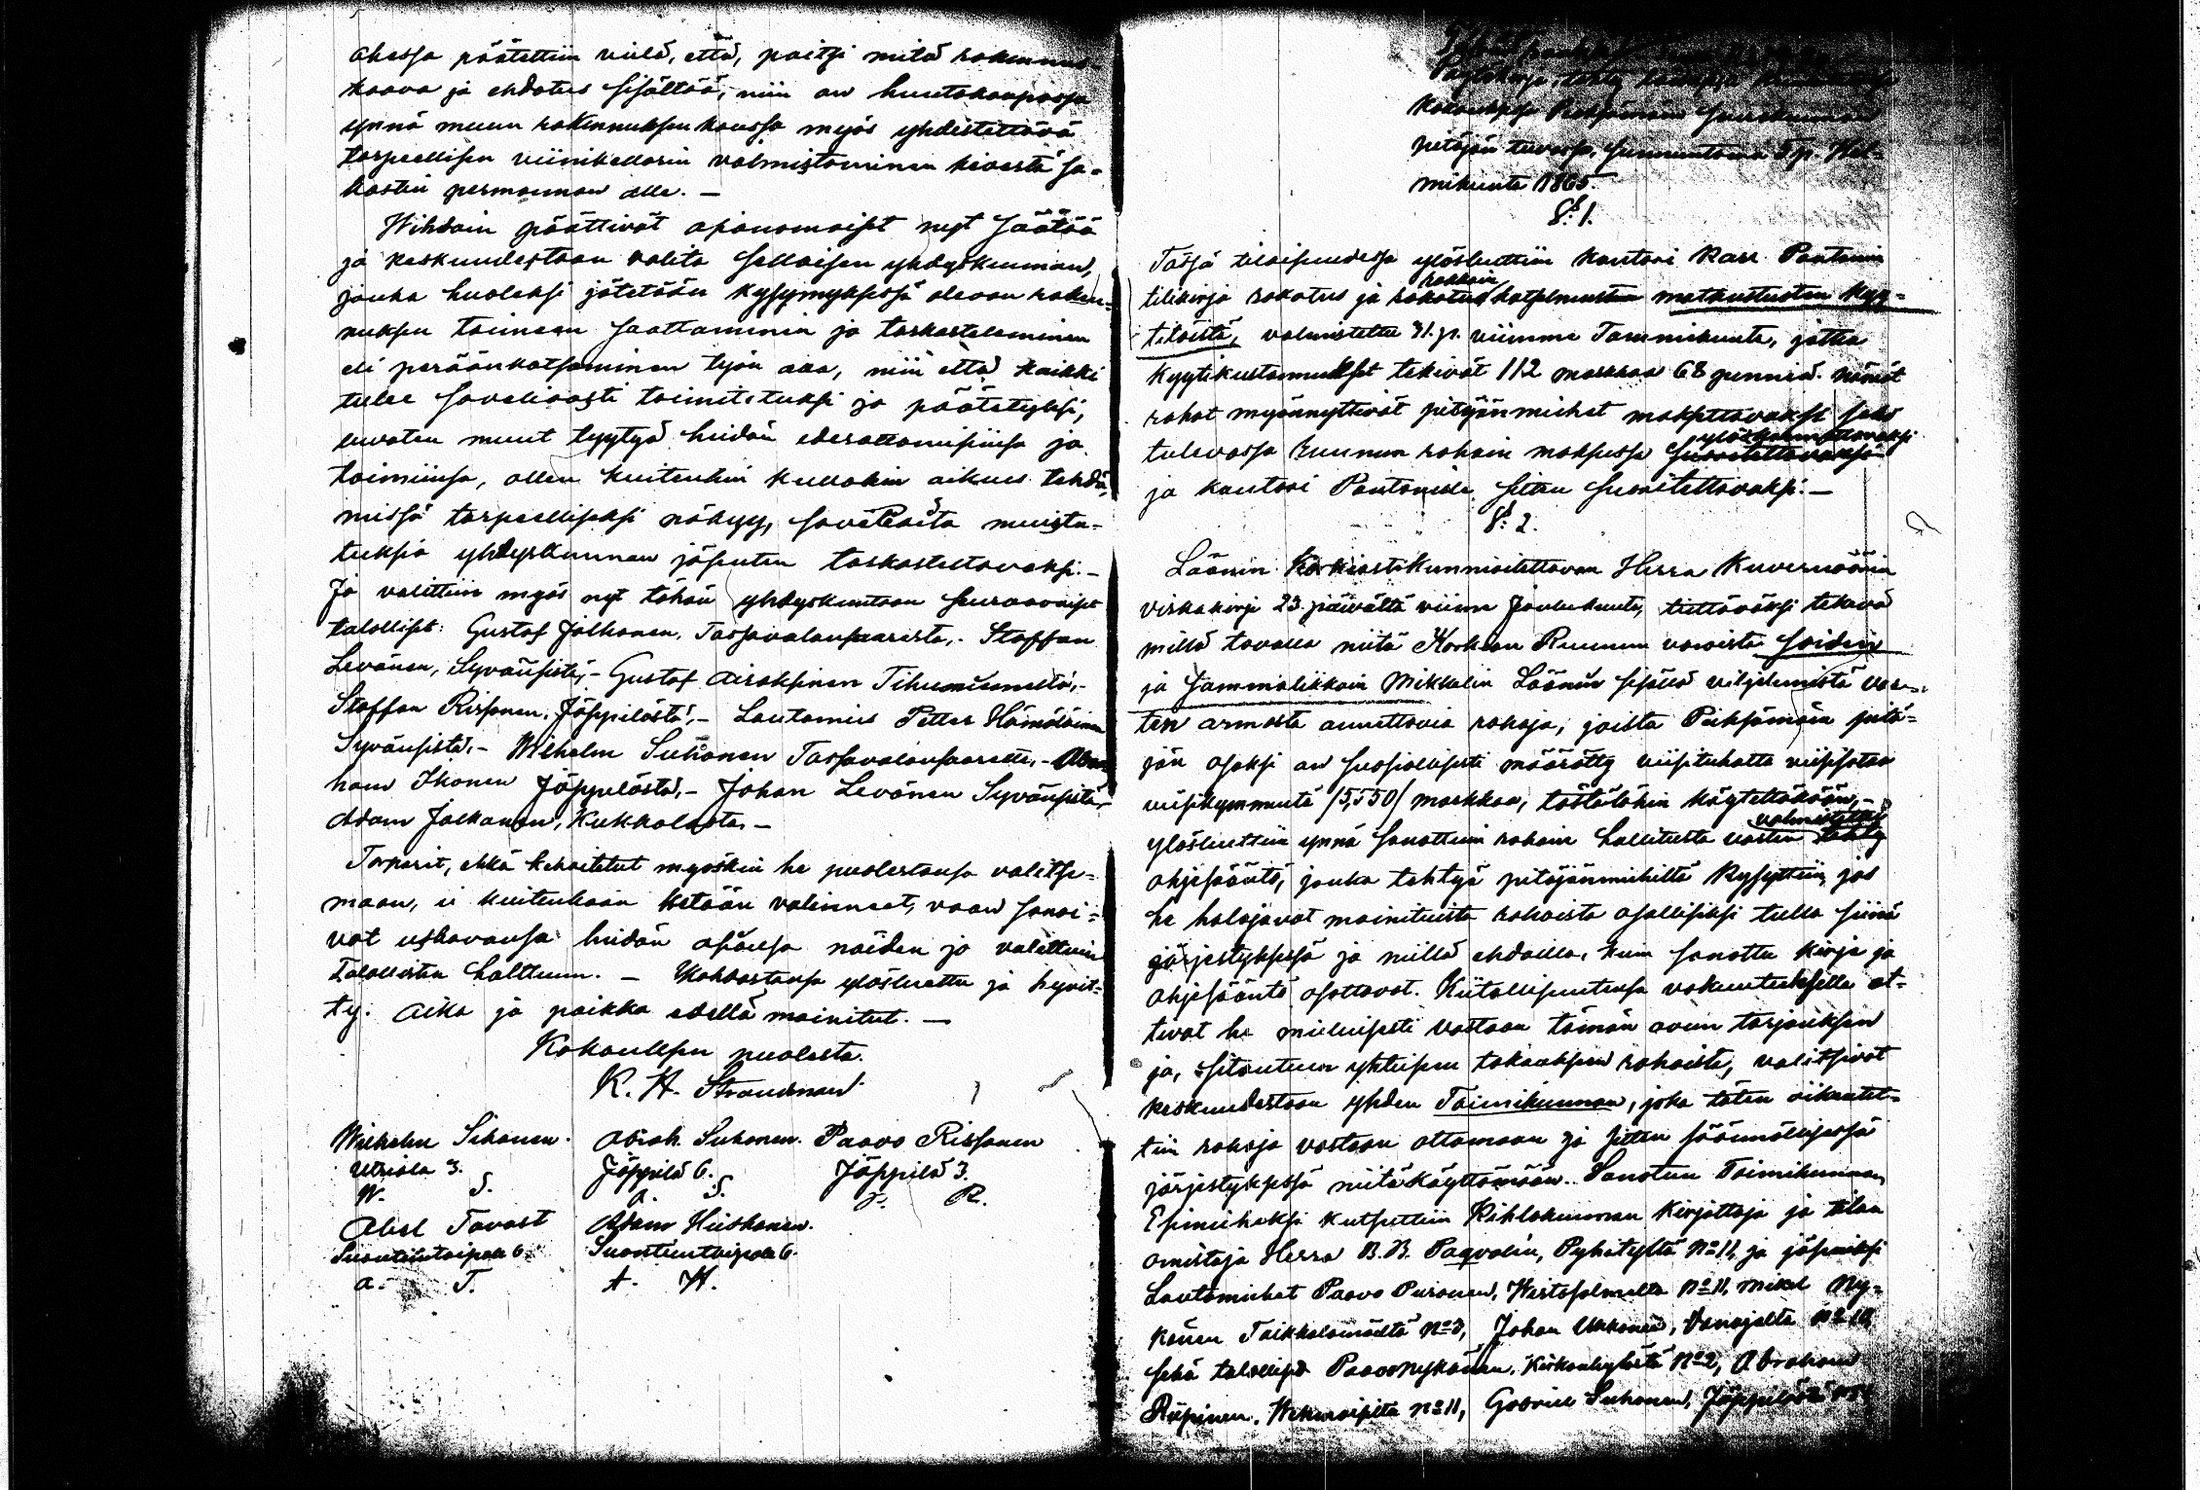 ohessa päätettiin vielä, että, paitsi mitä rakennus-
kaava ja ehdotus sisältää, niin on huutokaupassa
ynnä muun rakennuksen kanssa myös yhdistettävä
tarpeellisen viinikellarin valmistaminen kivestä sa-
kastin permannon alle. —
Wihdoin päättivät asianomaiset nyt säätää
ja keskuudestaan valita sellaisen yhdyskunnan,
jonka huoleksi jätetään kysymyksessä olevan raken-
nuksen toimeen saattaminen ja tarkasteleminen
eli peräänkatsominen työn alla, niin että kaikki
tulee soveliaasti toimitetuksi ja päätetyksi,
luvaten muut tyytyä heidän edesottamisiinsa ja
toimiinsa, ollen kuitenkin kullakin oikeus tehdä,
missä tarpeelliseksi näkyy, soveliaita muistu-
tuksia yhdyskunnan jäsenten tarkasteltavaksi. —
Ja valittiin myös nyt tähän yhdyskuntaan seuraavaiset
talolliset: Gustaf Jalkanen, Tassavalansaaresta, - Staffan
Levänen, Syvänsistä, - Gustaf Airaksinen Tihusniemeltä, -
Staffan Rissanen, Jäppilästä, - Lautamies Petter Hämäläinen
Syvänsistä, - Wilhelm Suhonen Tassavalansaaresta, - Abra
ham Ikonen Jäppilästä, - Johan Levänen Syvänsistä,
Adam Jalkanen, Kukkolasta, —
Torparit, ehkä kehoitetut myöskin he puolestansa valitse-
maan, ei kuitenkaan ketään valinneet, vaan sanoi-
vat uskovansa heidän asiansa näiden jo valittuin
Talollisten haltuun. — Uudestansa ylösluettu ja hyväs-
ty. Aika ja paikka edellä mainitut. —
Kokouksen puolesta.
K. H. Strandman
Wilhelm Sihonen. Abrah. Suhonen. Paavo Rissanen
Utriala 3. Jäppilä 6. Jäppilä 3.
W. S. A. S. P. R.
Abel Tavast Adam Hiiskonen.
Suontientaipale 6. Suontientaipale 6.
A. T. A. H.
Pöytäkirja, tehty
kokouksessa Pieksämäen Seurakunnan
pitäjän tuvassa, sunnuntaina 5 p. Hel-
mikuuta 1865.
§: 1.
Tässä tilaisuudessa ylösluettiin kantori Karl Pantzarin
tilikirja rokotus ja rokotus rakkoin katselmusten matkustusten kyy-
titöistä, valmistettu 31. p. viimme Tammikuuta, jotka
kyytikustannukset tekivät 112 markkaa 68 penniä. Nämät
rahat myönnyttivät pitäjänmiehet maksettavaksi sekä
tulevassa ruunun rahain maksussa suoritettavaksi ylöskannettavaksi
ja kantori Pantzarille sitten suoritettavaksi. —
§: 2.
Läänin Korkiastikunnioitettavan Herra Kuvernöörin
virkakirja 23. päivältä viime Joulukuuta, tiettäväksi tekevä
millä tavalla niitä Korkean Ruunun varoista soiden
ja jammalikkoin Mikkelin Läänin sisällä viljelemistä var-
ten armosta annettavia rahoja, joista Pieksämäen pitä-
jän osaksi on suosiollisesti määrätty viisituhatta viisisataa
viisikymmentä /5,550/ markkaa, tästälähin käytettäköön, -
ylösluettiin ynnä sanottuin rahain hallitusta varten tehty valmistettu
ohjesääntö, jonka tehtyä pitäjänmiehiltä kysyttiin, jos
he halajavat mainituista rahoista osalliseksi tulla siinä
järjestyksessä ja niillä ehdoilla, kuin sanottu kirja ja
ohjesääntö osottavat. Kiitollisuutensa vakuutuksella ot-
tivat he mieluisesti vastaan tämän avun tarjouksen
ja, sitoutuen yhteiseen takaukseen rahoista, valitsivat
keskuudestaan yhden Toimikunnan, joka täten oikeutet-
tiin rahoja vastaan ottamaan ja sitten säännöllisessä
järjestyksessä niitä käyttämään. Sanotun Toimikunnan
Esimieheksi kutsuttiin Kihlakunnan kirjottaja ja tilan
omistaja Herra B. B. Paqvalin, Pyhityltä No 11, ja jäseniksi
Lautamiehet Paavo Puronen, Wirtasalmelta No 11, Mikel Ny-
känen Toikkalamäeltä No 3, Johan Ukkonen, Vanajalta No 10,
sekä talolliset Paavo Nykänen, Kirkonkylästä No 2, Abraham
Riipinen, No 11, Gabriel Suhonen, Jäppilästä No